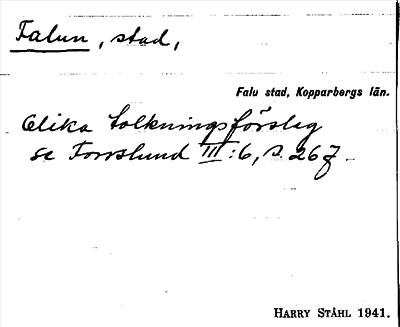 Falun, stad,
Falu stad, Kopparbergs län.
Olika tolkningsförslag
se Forsslund III:6, s. 267.
HARRY STÅHL 1941.